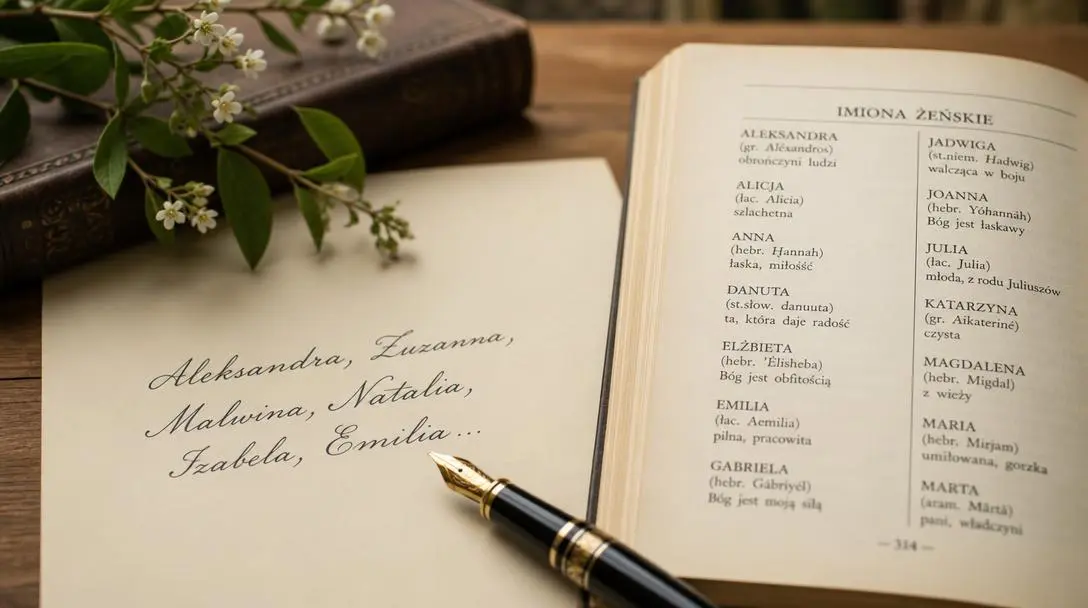 Aleksandra, Zuzanna,
Malwina, Natalia,
Izabela, Emilia...
IMIONA ŻEŃSKIE
ALEKSANDRA
(gr. Aléxandros)
obrończyni ludzi
ALICJA
(łac. Alicia)
szlachetna
ANNA
(hebr. Ḥannah)
łaska, miłośść
DANUTA
(st.słow. danuuta)
ta, która daje radość
ELŻBIETA
(hebr. 'Élisheba)
Bóg jest obfitością
EMILIA
(łac. Aemilia)
pilna, pracowita
GABRIELA
(hebr. Gábriyél)
Bóg jest moją siłą
JADWIGA
(st.niem. Hadwig)
walcząca w boju
JOANNA
(hebr. Yóhannáh)
Bóg jest łaskawy
JULIA
(łac. Julia)
młoda, z rodu Juliuszów
KATARZYNA
(gr. Aikateriné)
czysta
MAGDALENA
(hebr. Migdal)
z wieży
MARIA
(hebr. Mirjam)
umiłowana, gorzka
MARTA
(aram. Mārtā)
pani, władczyni
— 314 —